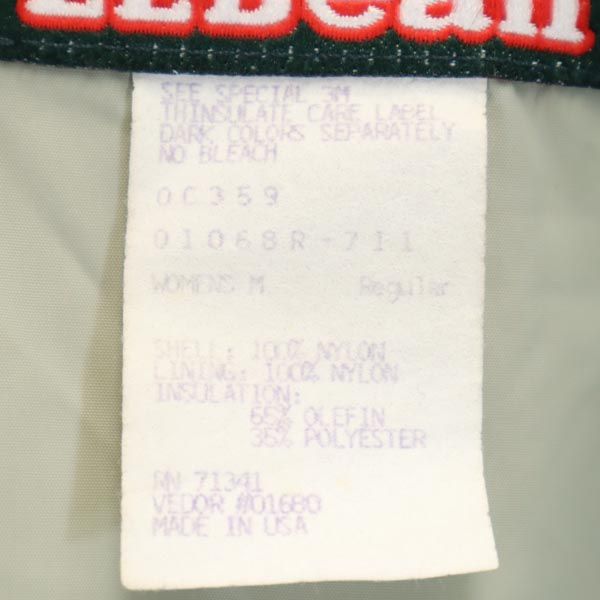 L.L.Bean
SEE SPECIAL 3M
THINSULATE CARE LABEL
DARK COLORS SEPARATELY
NO BLEACH
0C359
01068R-711
WOMENS M Regular
SHELL: 100% NYLON
LINING: 100% NYLON
INSULATION:
65% OLEFIN
35% POLYESTER
RN 71341
VEDOR #01680
MADE IN USA